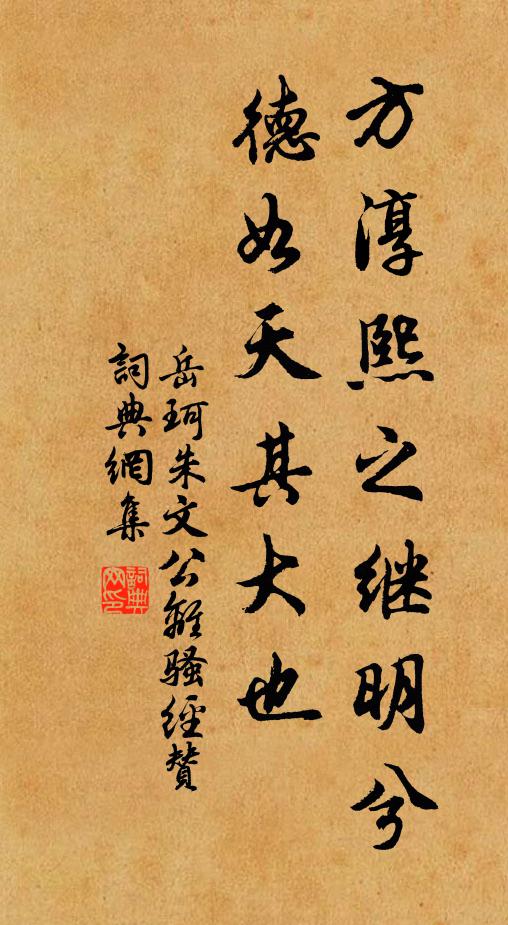 方淳熙之继明兮
德如天其大也
岳珂朱文公離骚經贊
詞典網集
詞典網印